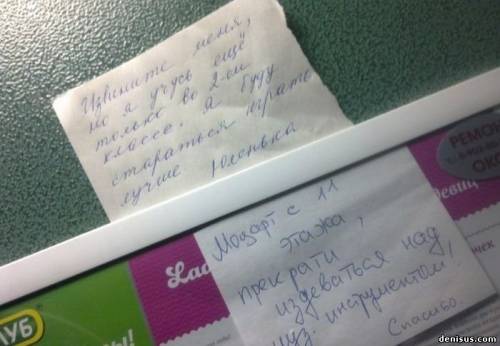 Извините меня,
но я учусь ещё
только во 2-ом
классе. Я буду
стараться играть
лучше Юленька
РЕМО
ОК
Lad
девиц
УБ
Моцарт с 11
этажа,
прекрати
издеваться над
муз. инструментом!
Спасибо.
denisus.com